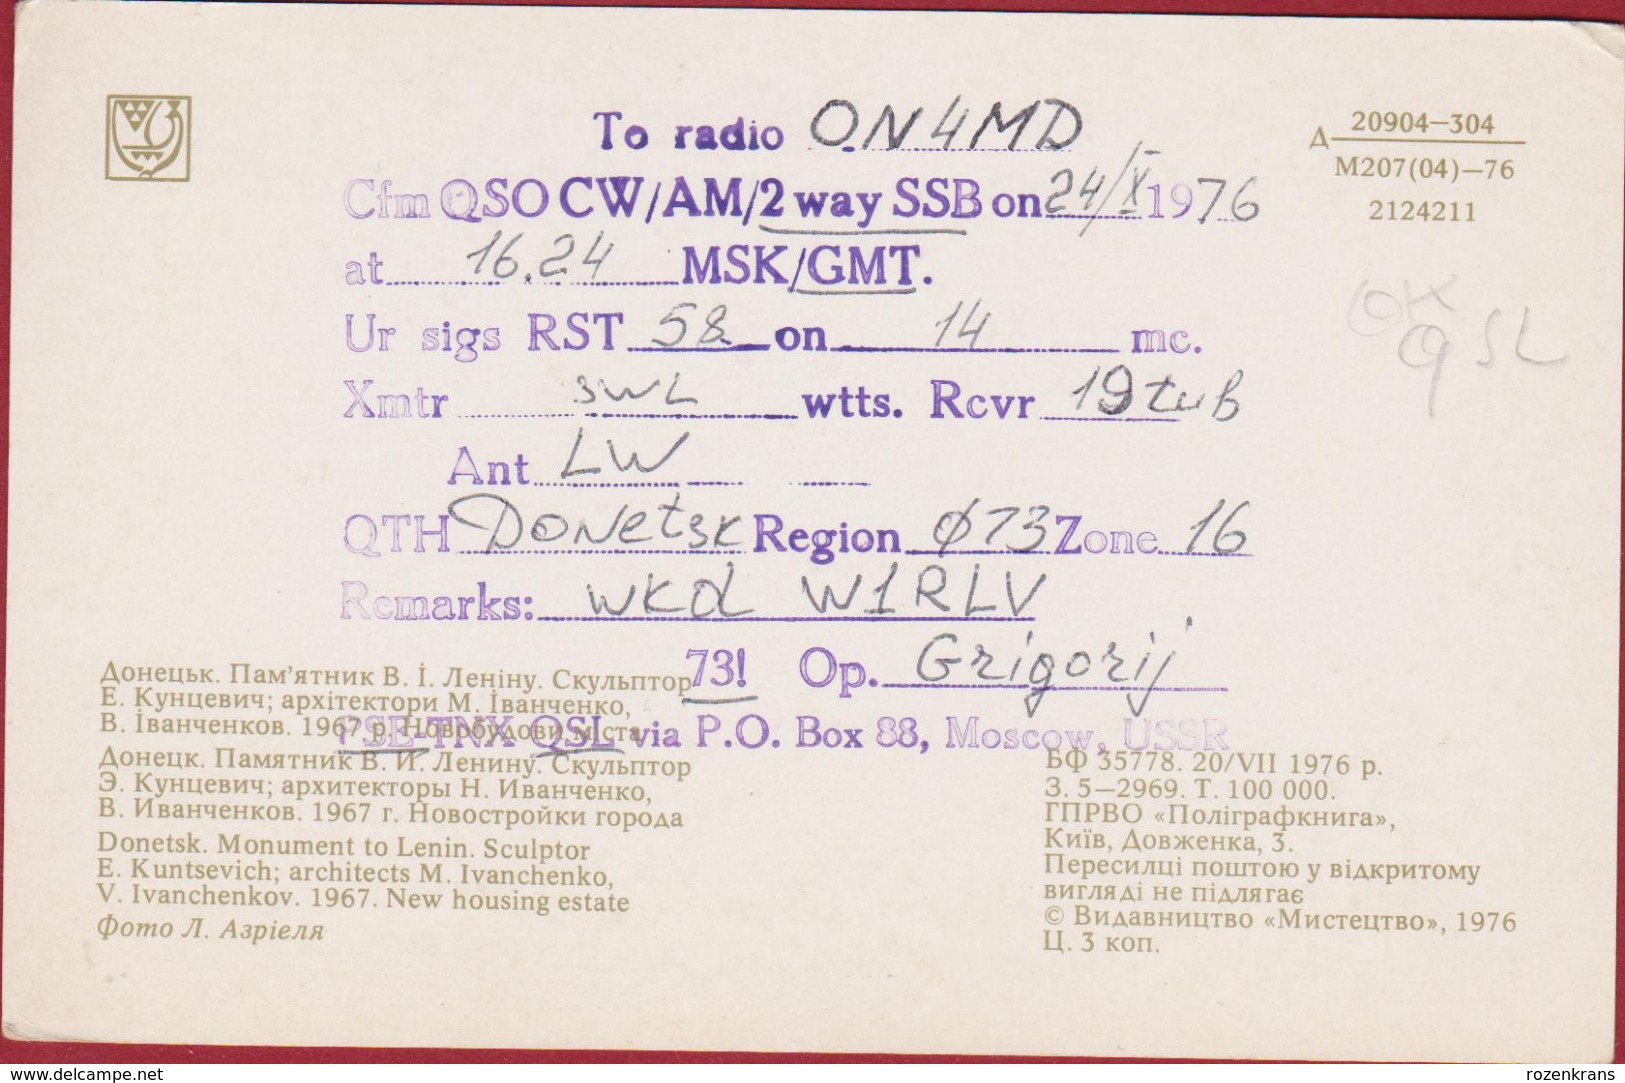 To radio ON4MD
Cfm QSO CW/AM/2 way SSB on 24/X 1976
at 16.24 MSK/GMT.
Ur sigs RST 58 on 14 mc.
Xmtr SWL wtts. Rcvr 19 tub
Ant LW
QTH Donetsk Region Ø73 Zone 16
Remarks: WKD W1RLV
73! Op. Grigorij
PSE-TNX QSL via P.O. Box 88, Moscow, USSR
Д 20904—304
М207(04)—76
2124211
OK
QSL
Донецьк. Пам'ятник В. І. Леніну. Скульптор
Е. Кунцевич; архітектори М. Іванченко,
В. Іванченков. 1967 р. Новобудови міста
Донецк. Памятник В. И. Ленину. Скульптор
Э. Кунцевич; архитекторы Н. Иванченко,
В. Иванченков. 1967 г. Новостройки города
Donetsk. Monument to Lenin. Sculptor
E. Kuntsevich; architects M. Ivanchenko,
V. Ivanchenkov. 1967. New housing estate
Фото Л. Азрієля
БФ 35778. 20/VII 1976 р.
З. 5—2969. Т. 100 000.
ГПРВО «Поліграфкнига»,
Київ, Довженка, 3.
Пересилці поштою у відкритому
вигляді не підлягає
© Видавництво «Мистецтво», 1976
Ц. 3 коп.
www.delcampe.net
rozenkrans